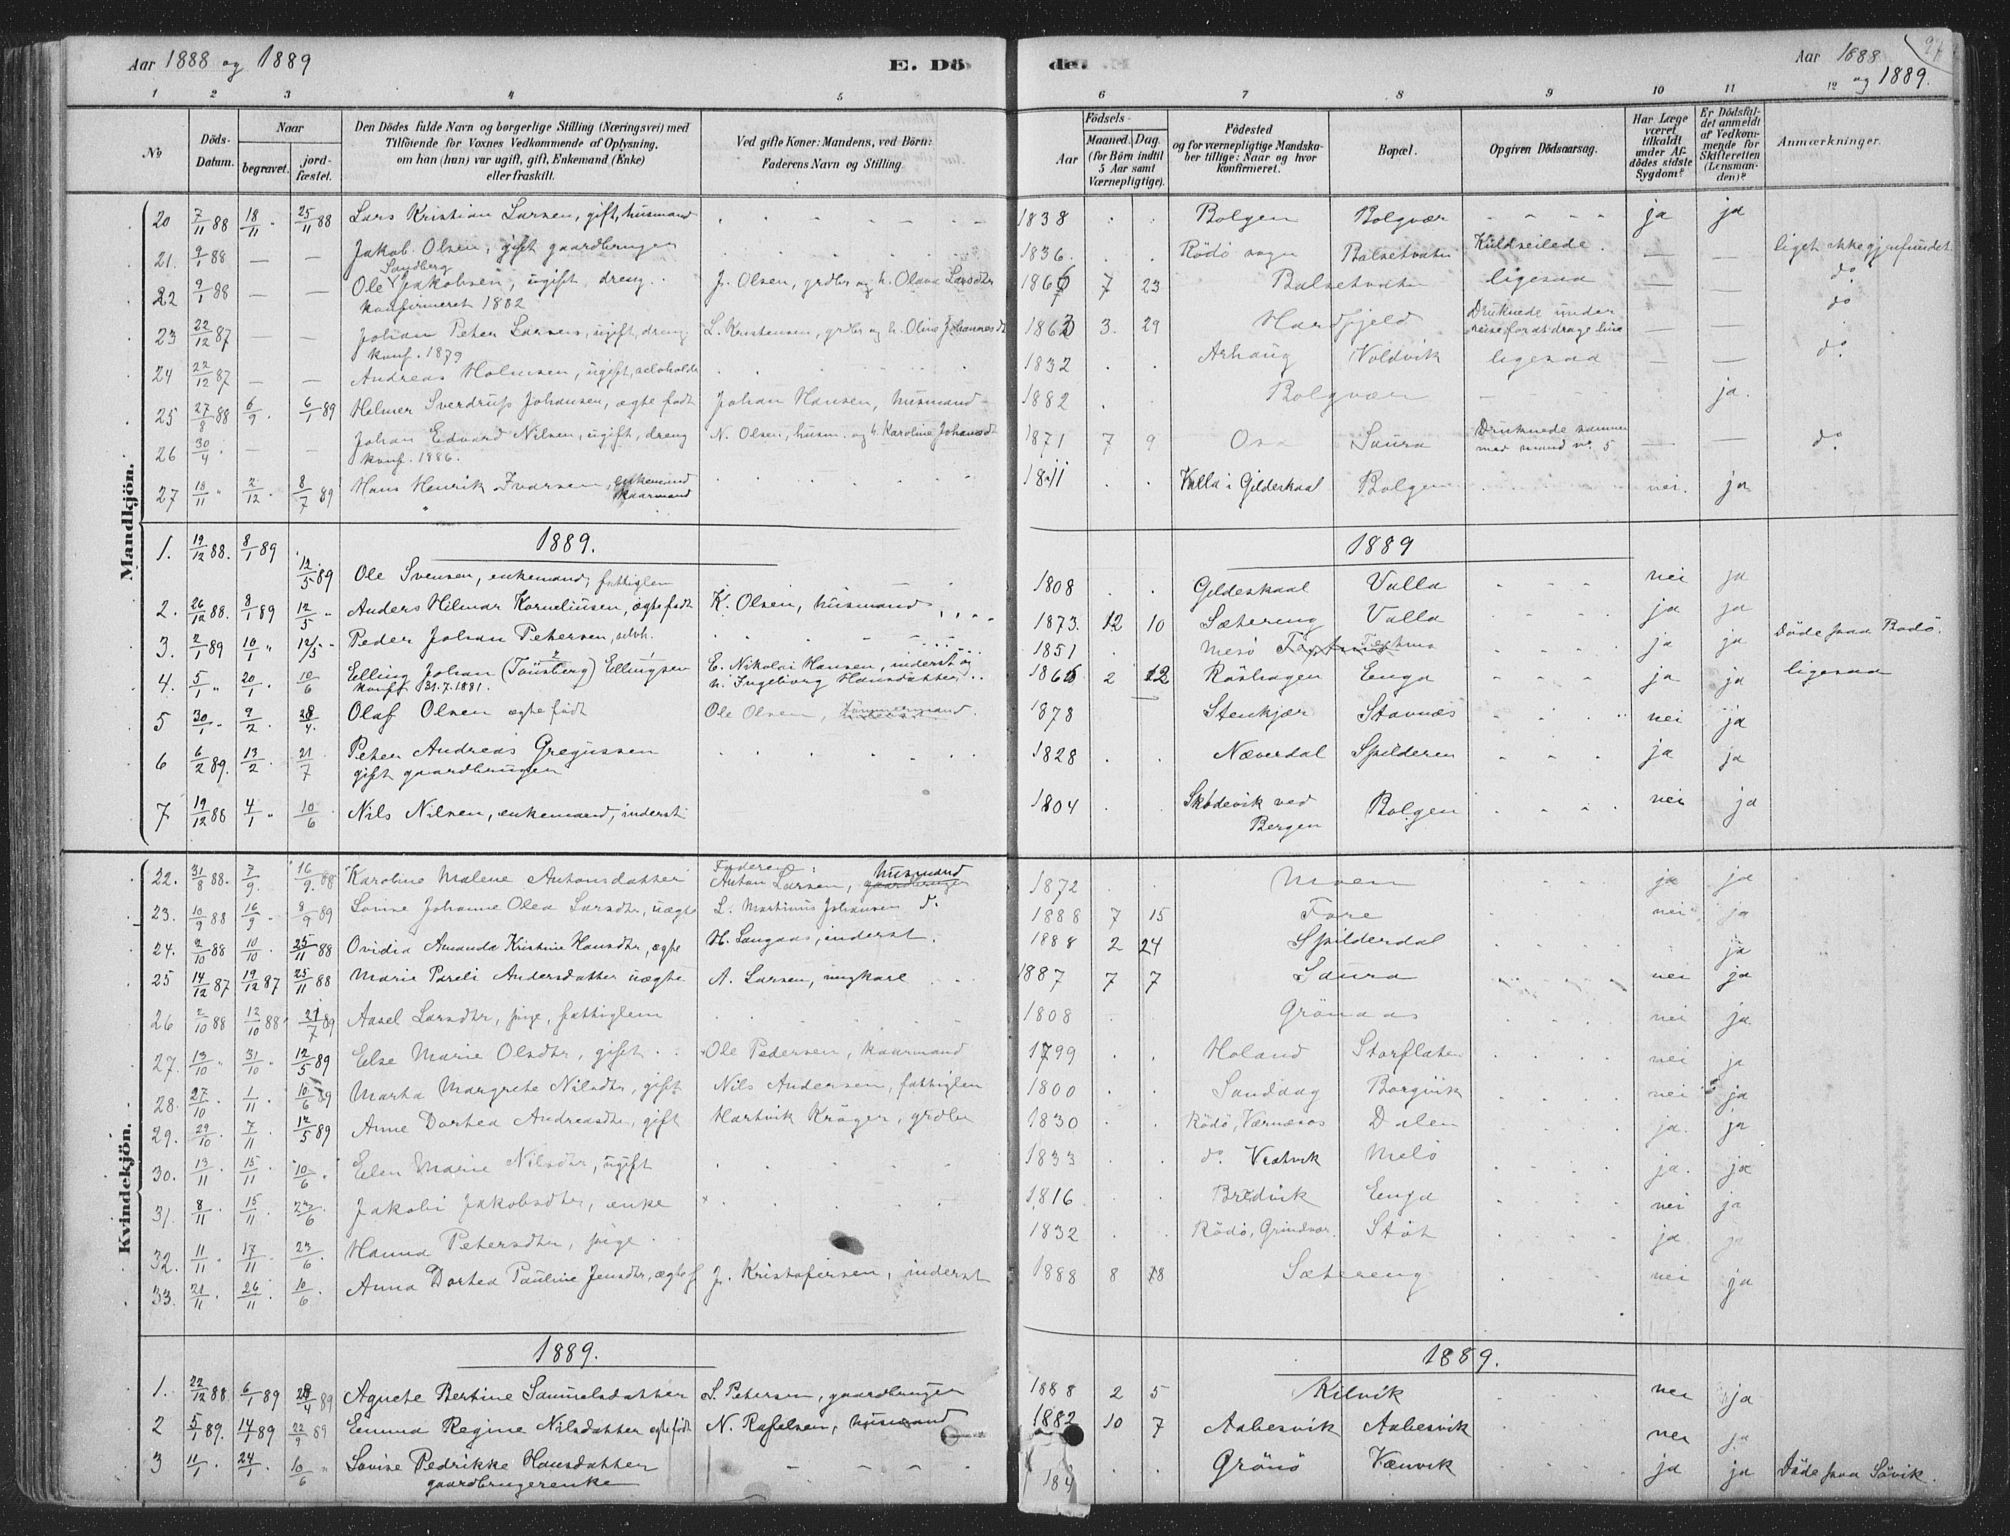 Aar 1888 og 1889 E. Dö de. Aar 1888 og 1889.
1 2 3 4 5 6 7 8 9 10 11 12
No Döds-Datum. Naar begravet. jordfæstet. Den Dödes fulde Navn og borgerlige Stilling (Næringsvei) med Tilföiende for Voxnes Vedkommende af Oplysning, om han (hun) var ugift, gift, Enkemand (Enke) eller fraskilt. Ved gifte Koner: Mandens, ved Börn: Faderens Navn og Stilling. Födsels- Aar Maaned. Dag. (for Börn indtil 5 Aar samt Værnepligtige). Födested og for værnepligtige Mandskaber tillige: Naar og hvor konfirmeret. Bopæl. Opgiven Dödsaarsag. Har Læge været tilkaldt under Afdödes sidste Sygdom? Er Dödsfaldet anmeldt af Vedkommende for Skifteretten (Lensmanden)? Anmærkninger.
Mandkjön.
20 7/11 88 18/11 " 25/11 88 Lars Kristian Larsen, gift, husmand 1838 Bolgen Bolgvær ja ja
21. 9/1 88 — — Jakob Olsen, gift gaardbruger 1836 Rödö sogn Balsetvaten Kuldseilede. — — liget ikke gjenfundet
22 9/1 88 — — Ole Sandberg Jakobsen, ugift, dreng. konfirmeret 1882 J. Olsen, grdbr og h. Olava Larsdtr 1866 7 23 Balsetvaten ligesaa — — do
23 22/12 87 — — Johan Peter Larsen, ugift, dreng konf. 1879 L. Kristensen, grdbr og h. Oline Johannesdt 1863 3. 29 Hardfjeld Druknede under reise for at drage line — — do
24 22/12 87 — — Andreas Holmsen, ugift, selvholde 1832 Arhaug Noldvik ligesaa — — do.
25 27/8 88 6/9 6/1 89 Helmer Sverdrup Johansen, ægte født Johan Hansen, husmand 1882 Bolgvær ja.
26 30/4 — — Johan Edvard Nilsen, ugift, dreng konf. 1886. N. Olsen, husm. og h. Karoline Johansdt 1871 7 9 Osa Saura Druknede sammen med mand no 5 — — do
27 18/11 " 2/12 8/7 89 Hans Henrik Ivarsen, enkemand kaarmand 1811 Valla i Gildeskaal Bolgen nei. ja
1889. 1889
1. 19/12 88. 8/1 89 12/5 89 Ole Svensen, enkemand, fattiglem 1808 Gildeskaal Valla nei ja
2. 26/12 88. 8/1 89 12/5 " Anders Hilmar Korneliussen, ægte født K. Olsen, husmand 1873. 12 10 Sætereng Valla ja ja
3. 2/1 89 10/1 " 12/5 " Peder Johan Petersen, selvh. 1851 Mesö ja ja Döde paa Bodö.
4. 5/1 " 20/1 10/6 Elling Johan (Tönsberg) Ellingsen konf. 31.7.1881. E. Nikolai Hansen, inderst og h. Ingeborg Hansdatter 1866 2 12 Röshagen Enga ja ja ligesaa
5 30/1 9/2 28/4. Olaf Olsen ægte født Ole Olsen, 1878 Stenkjær Stavnæs nei ja
6 6/2 89. 13/2 21/7 Peter Andreas Gregussen gift gaardbruger 1828 Næverdal Spilderen ja ja
7 19/12 88 4/1 " 10/6 Nils Nilsen, enkemand, inderst 1804 Sködevik ved Bergen Bolgen nei ja
Kvindekjön.
22. 31/8 88. 7/9. 16/9 88 Karoline Malene Antonsdatter Faderen: Anton Larsen, husmand gaardbruger 1872 Moen ja ja
23. 10/9 88 16/9 8/9 89 Lovise Johanne Olea Larsdtr, uægte L. Martinus Johansen d. 1888 7 15 Fore nei ja
24. 2/10 88 10/10 25/11 88 Ovidia Amanda Kristine Hansdtr, ægte H. Langaas, inderst 1888 2 24 Spilderdal ja
25 14/12 87 19/12 87 25/11 88 Marie Pareli Andersdatter uægte A. Larsen, ungkarl 1887 7 7 Saura nei ja
26 2/10 88 12/10 88 21/7 89 Aasel Larsdtr, pige, fattiglem 1808 Grönaas nei ja
27. 13/10 " 31/10 12/5 89 Else Marie Olsdtr, gift Ole Pedersen, kaarmand 1799 Holand Storflaten nei ja
28. 27/10 1/11 10/6 89 Marta Margrete Nilsdtr, gift Nils Andersen, fattiglem 1800 Sandaag Borgvik nei ja
29. 29/10 7/11 12/5 89 Anne Dortea Andreasdtr, gift Hartvik Kröger, grdbr 1830 Rödö, Værnæsos Dalen ja. ja
30. 13/11 15/11 10/6 Elen Marie Nilsdtr, ugift 1833 do. Vratvik Melö ja. ja
31. 8/11 15/11 22/6 Jakobi Jakobsdtr, enke 1816 Bredvik Enga nei ja
32. 11/11 17/11 23/6 Hanna Petersdtr, pige 1832 Rödö, Grindvær Stöt ja. ja
33. 21/11 26/11 10/6 Anna Dortea Pauline Jensdtr, ægte f J. Kristofersen, inderst 1888 8 18 Sætereng nei ja
1889. 1889.
1. 22/12 88. 6/1 89 28/4 89 Agnete Bertine Samuelsdatter S. Petersen, gaardbruger 1888 2 5 Kilvik nei ja
2 5/1 89. 14/1 89 22/9 89 Emma Regine Nilsdatter ægte født N. Rafelsen, husmand 1882 10 7 Aabesvik Aabesvik nei ja
3 11/1 24/1 10/6 " Lovise Pedrikke Hansdatter gaardbrugerenke 184 Grönö Vænvik ja ja Döde paa Sövik.